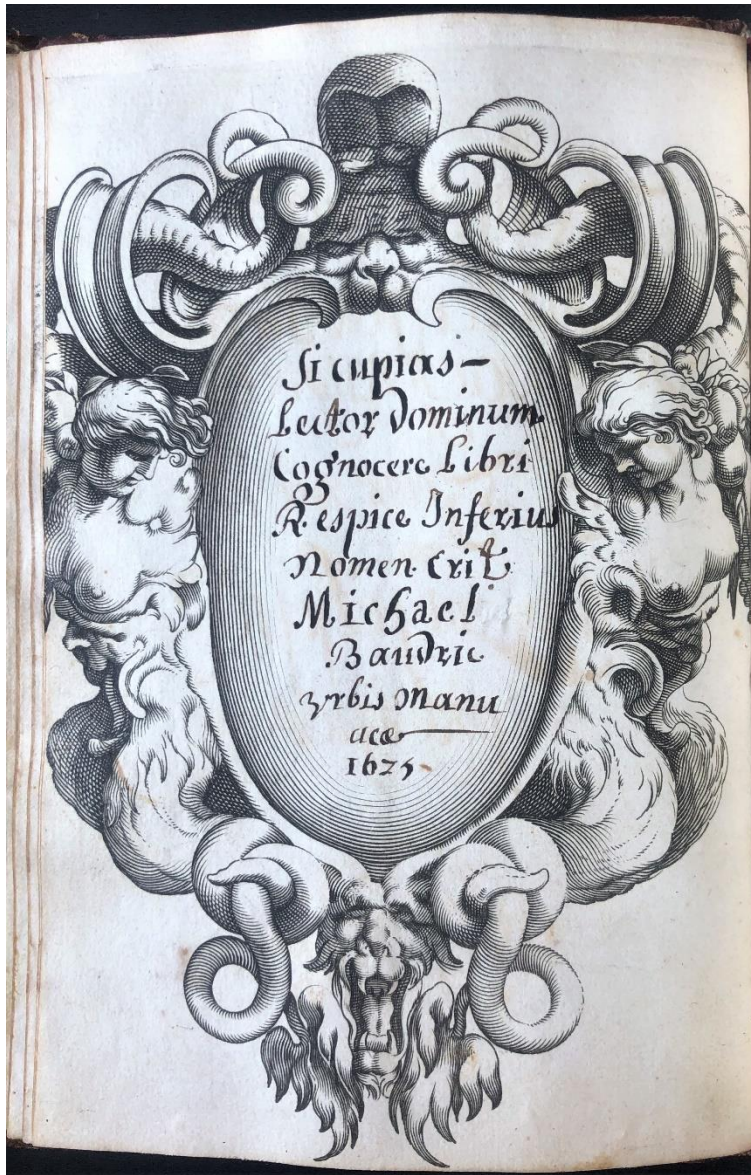 Si cupias –
Lector Dominum
Cognocere Libri
Respice Inferius
Nomen Erit
Michael
Baudric
Vrbis Manu
acæ
1625.